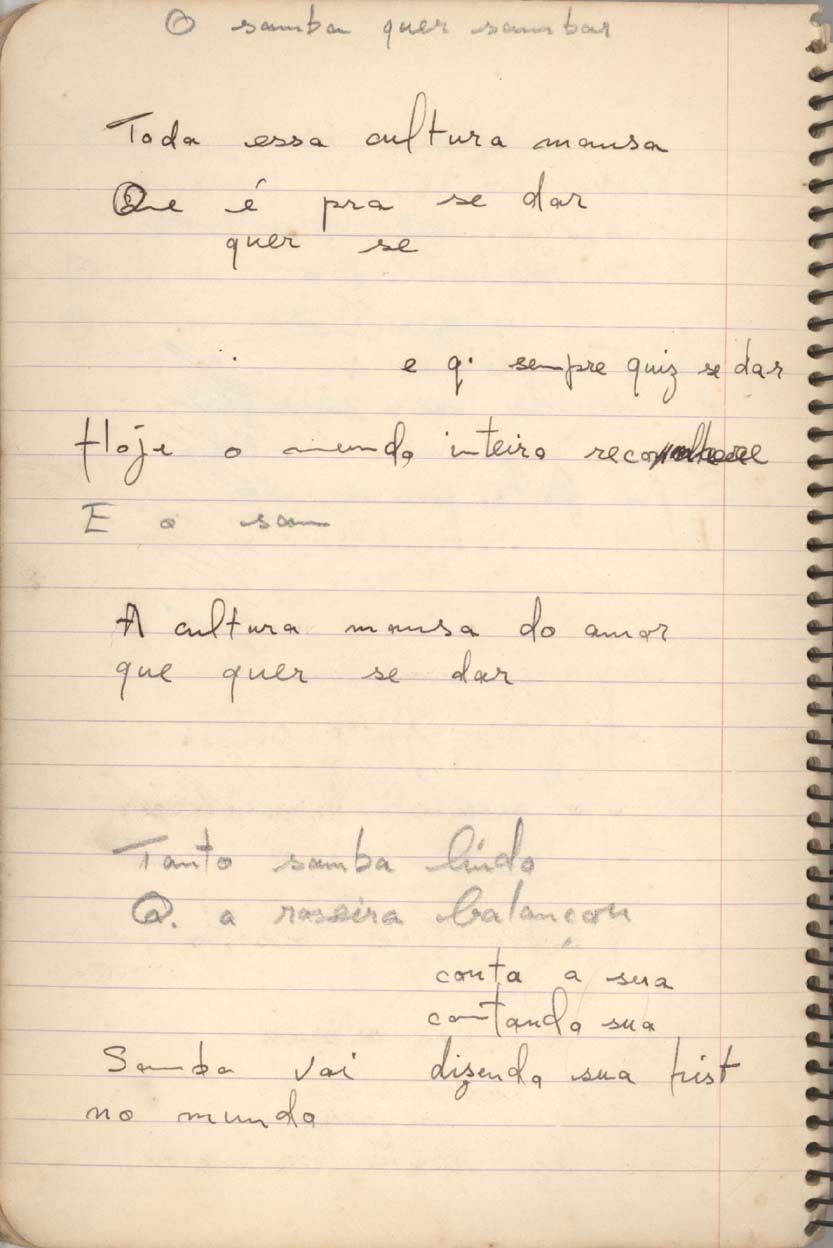 O samba quer sambar
Toda essa cultura mansa
Que é pra se dar
quer se
e q. sempre quiz se dar
Hoje o mundo inteiro reconhece
E o sam
A cultura mansa do amor
que quer se dar
Tanto samba lindo
Q. a roseira balançou
conta a sua
contando sua
Samba vai dizendo sua hist
no mundo